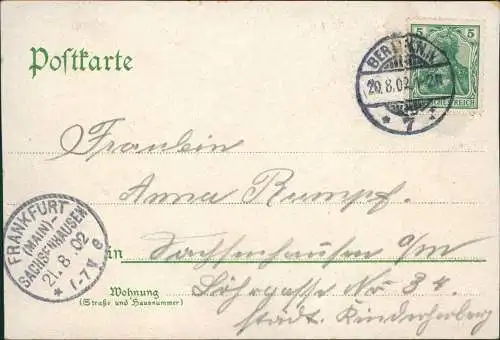 Postkarte
5 5
BERLIN N.W.
20.8.02
* 7 *
REICH
Fraulein
Anna Rumpf.
in Sachsenhausen a/m
Wohnung Löhrgasse No 34.
(Straße und Hausnummer)
städt. Kinderherberg
FRANKFURT
(MAIN)
SACHSENHAUSEN
21.8.02
* 1-7 V e